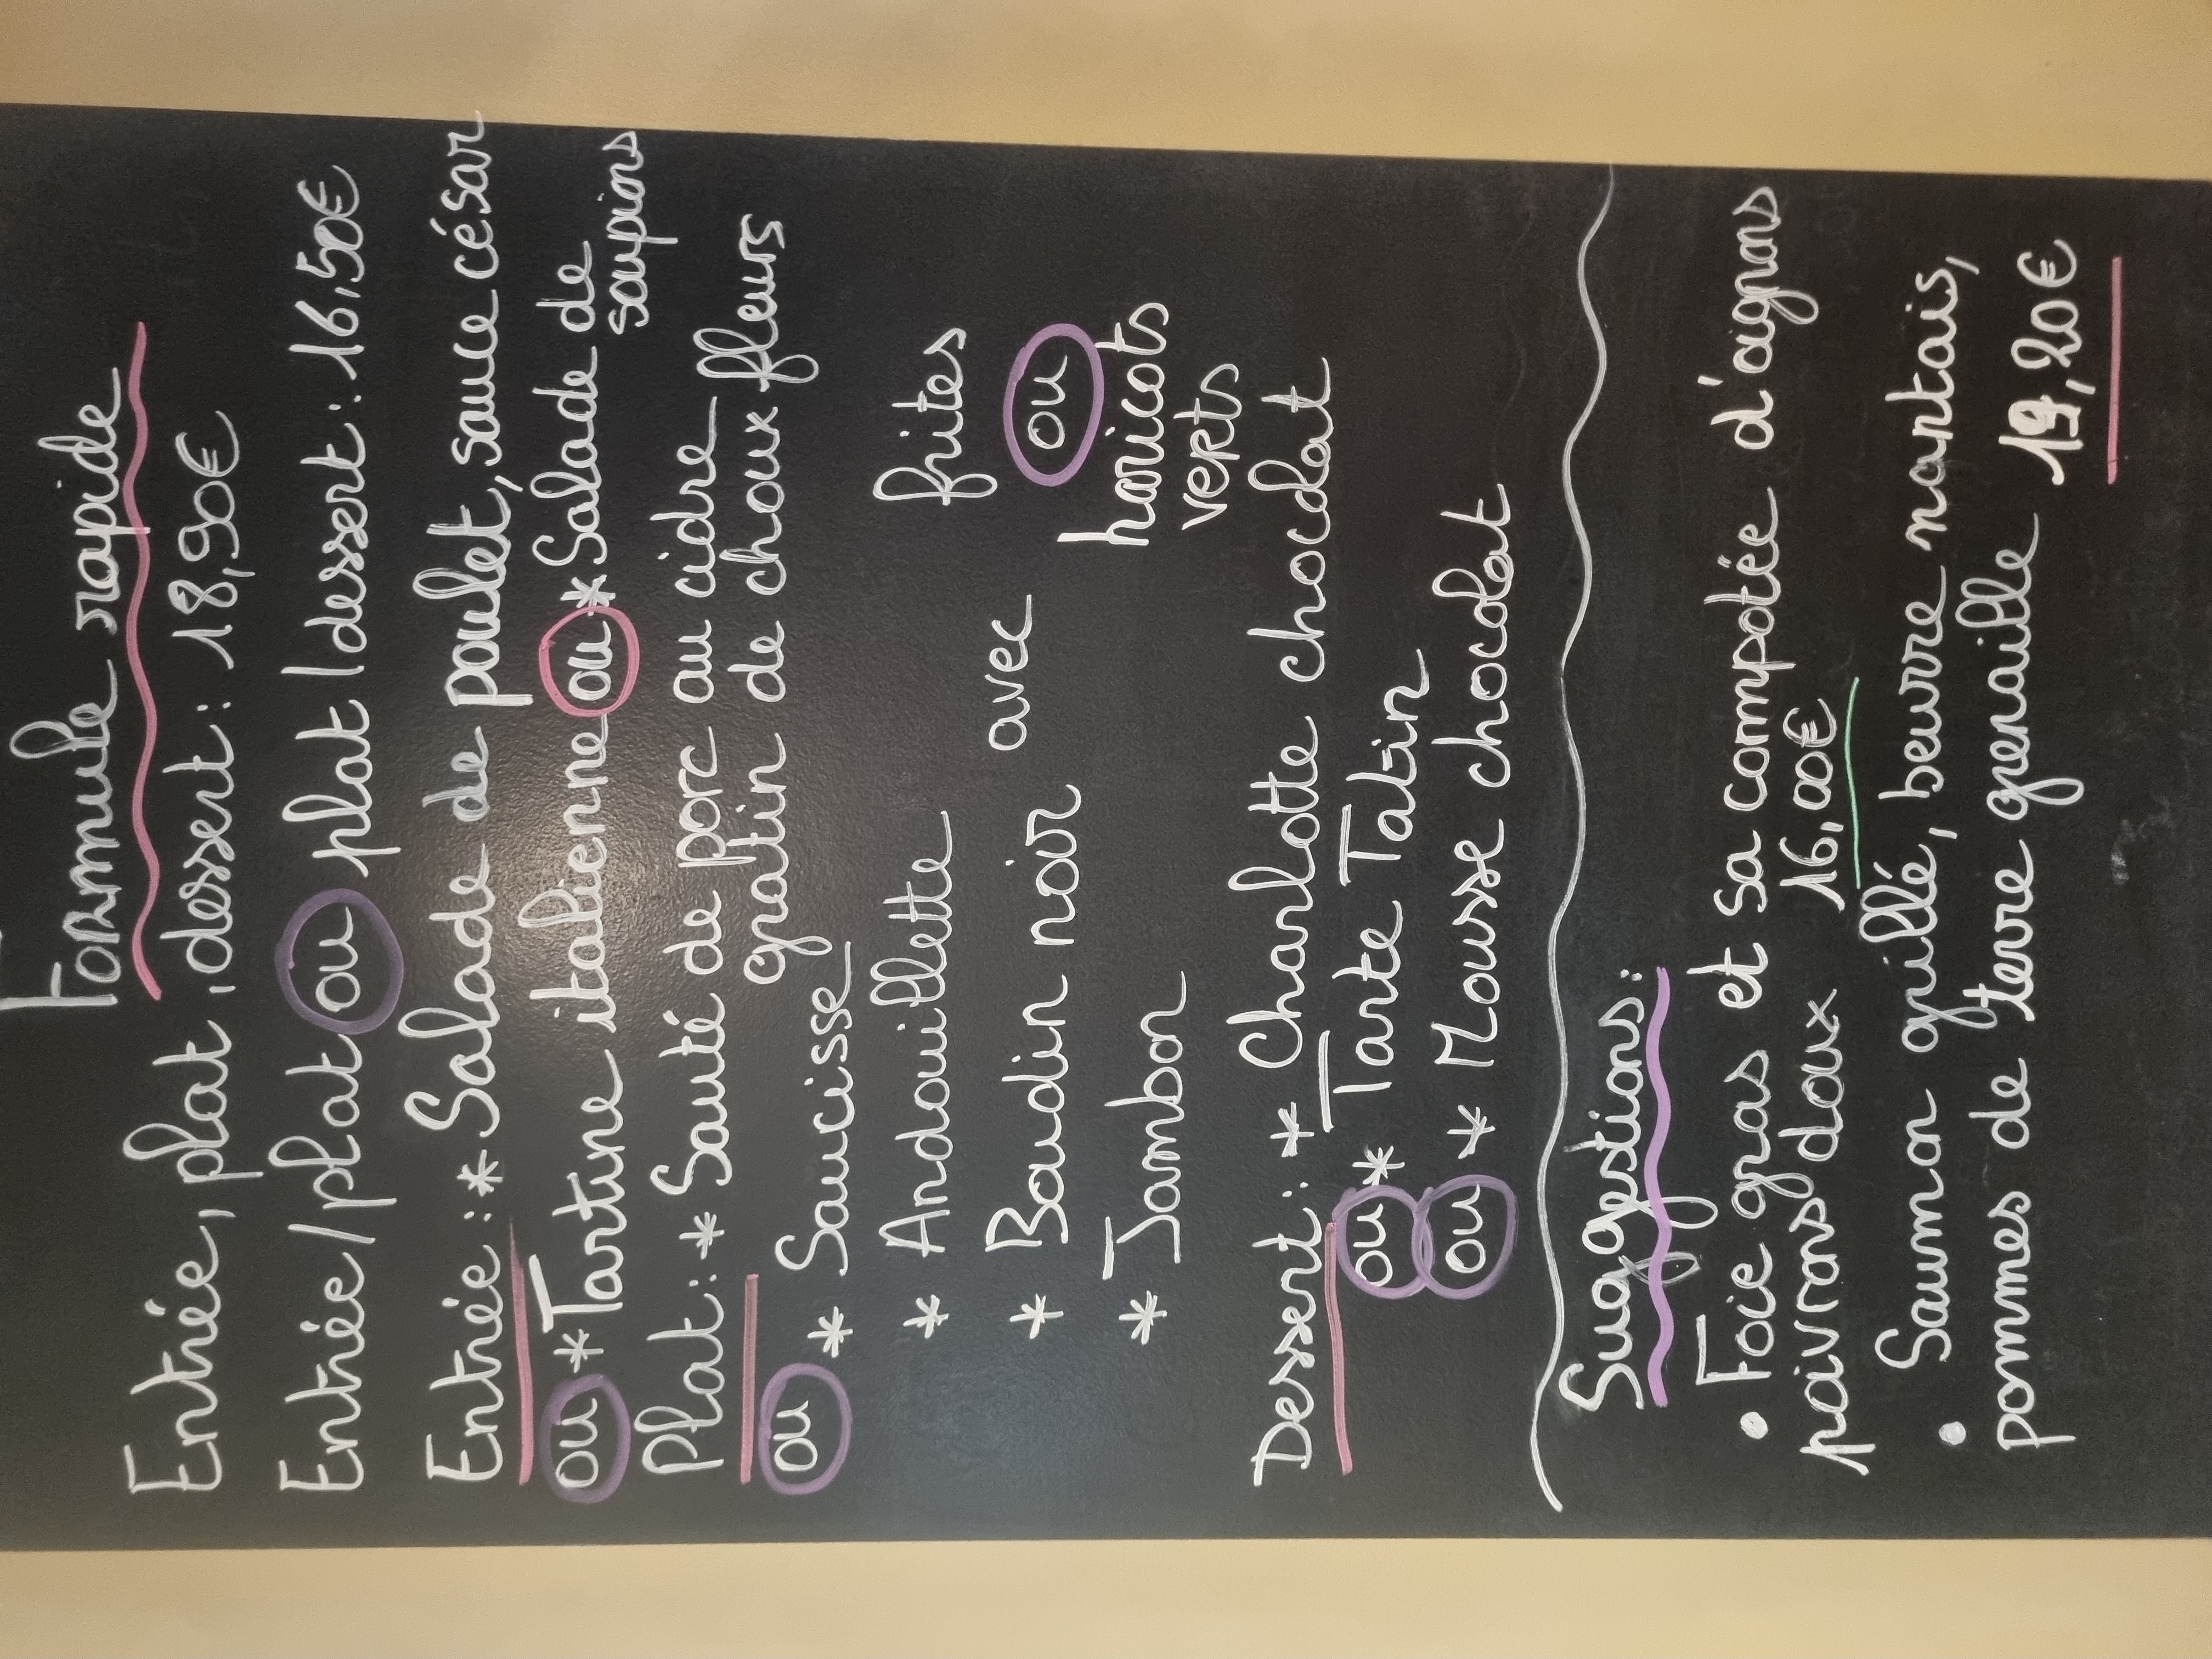 Formule rapide
Entrée, plat, dessert : 18,90€
Entrée/plat ou plat/dessert : 16,50€
Entrée : * Salade de poulet, sauce césar
ou * Tartine italienne ou * Salade de
soupions
Plat : * Sauté de porc au cidre
gratin de choux fleurs
ou * Saucisse
* Andouillette frites
* Boudin noir avec ou
* Jambon haricots
verts
Dessert : * Charlotte chocolat
ou * Tarte Tatin
ou * Mousse chocolat
Suggestions :
• Foie gras et sa compotée d'oignons
poivrons doux 16,00€
• Saumon grillé, beurre nantais,
pommes de terre grenaille 19,20€